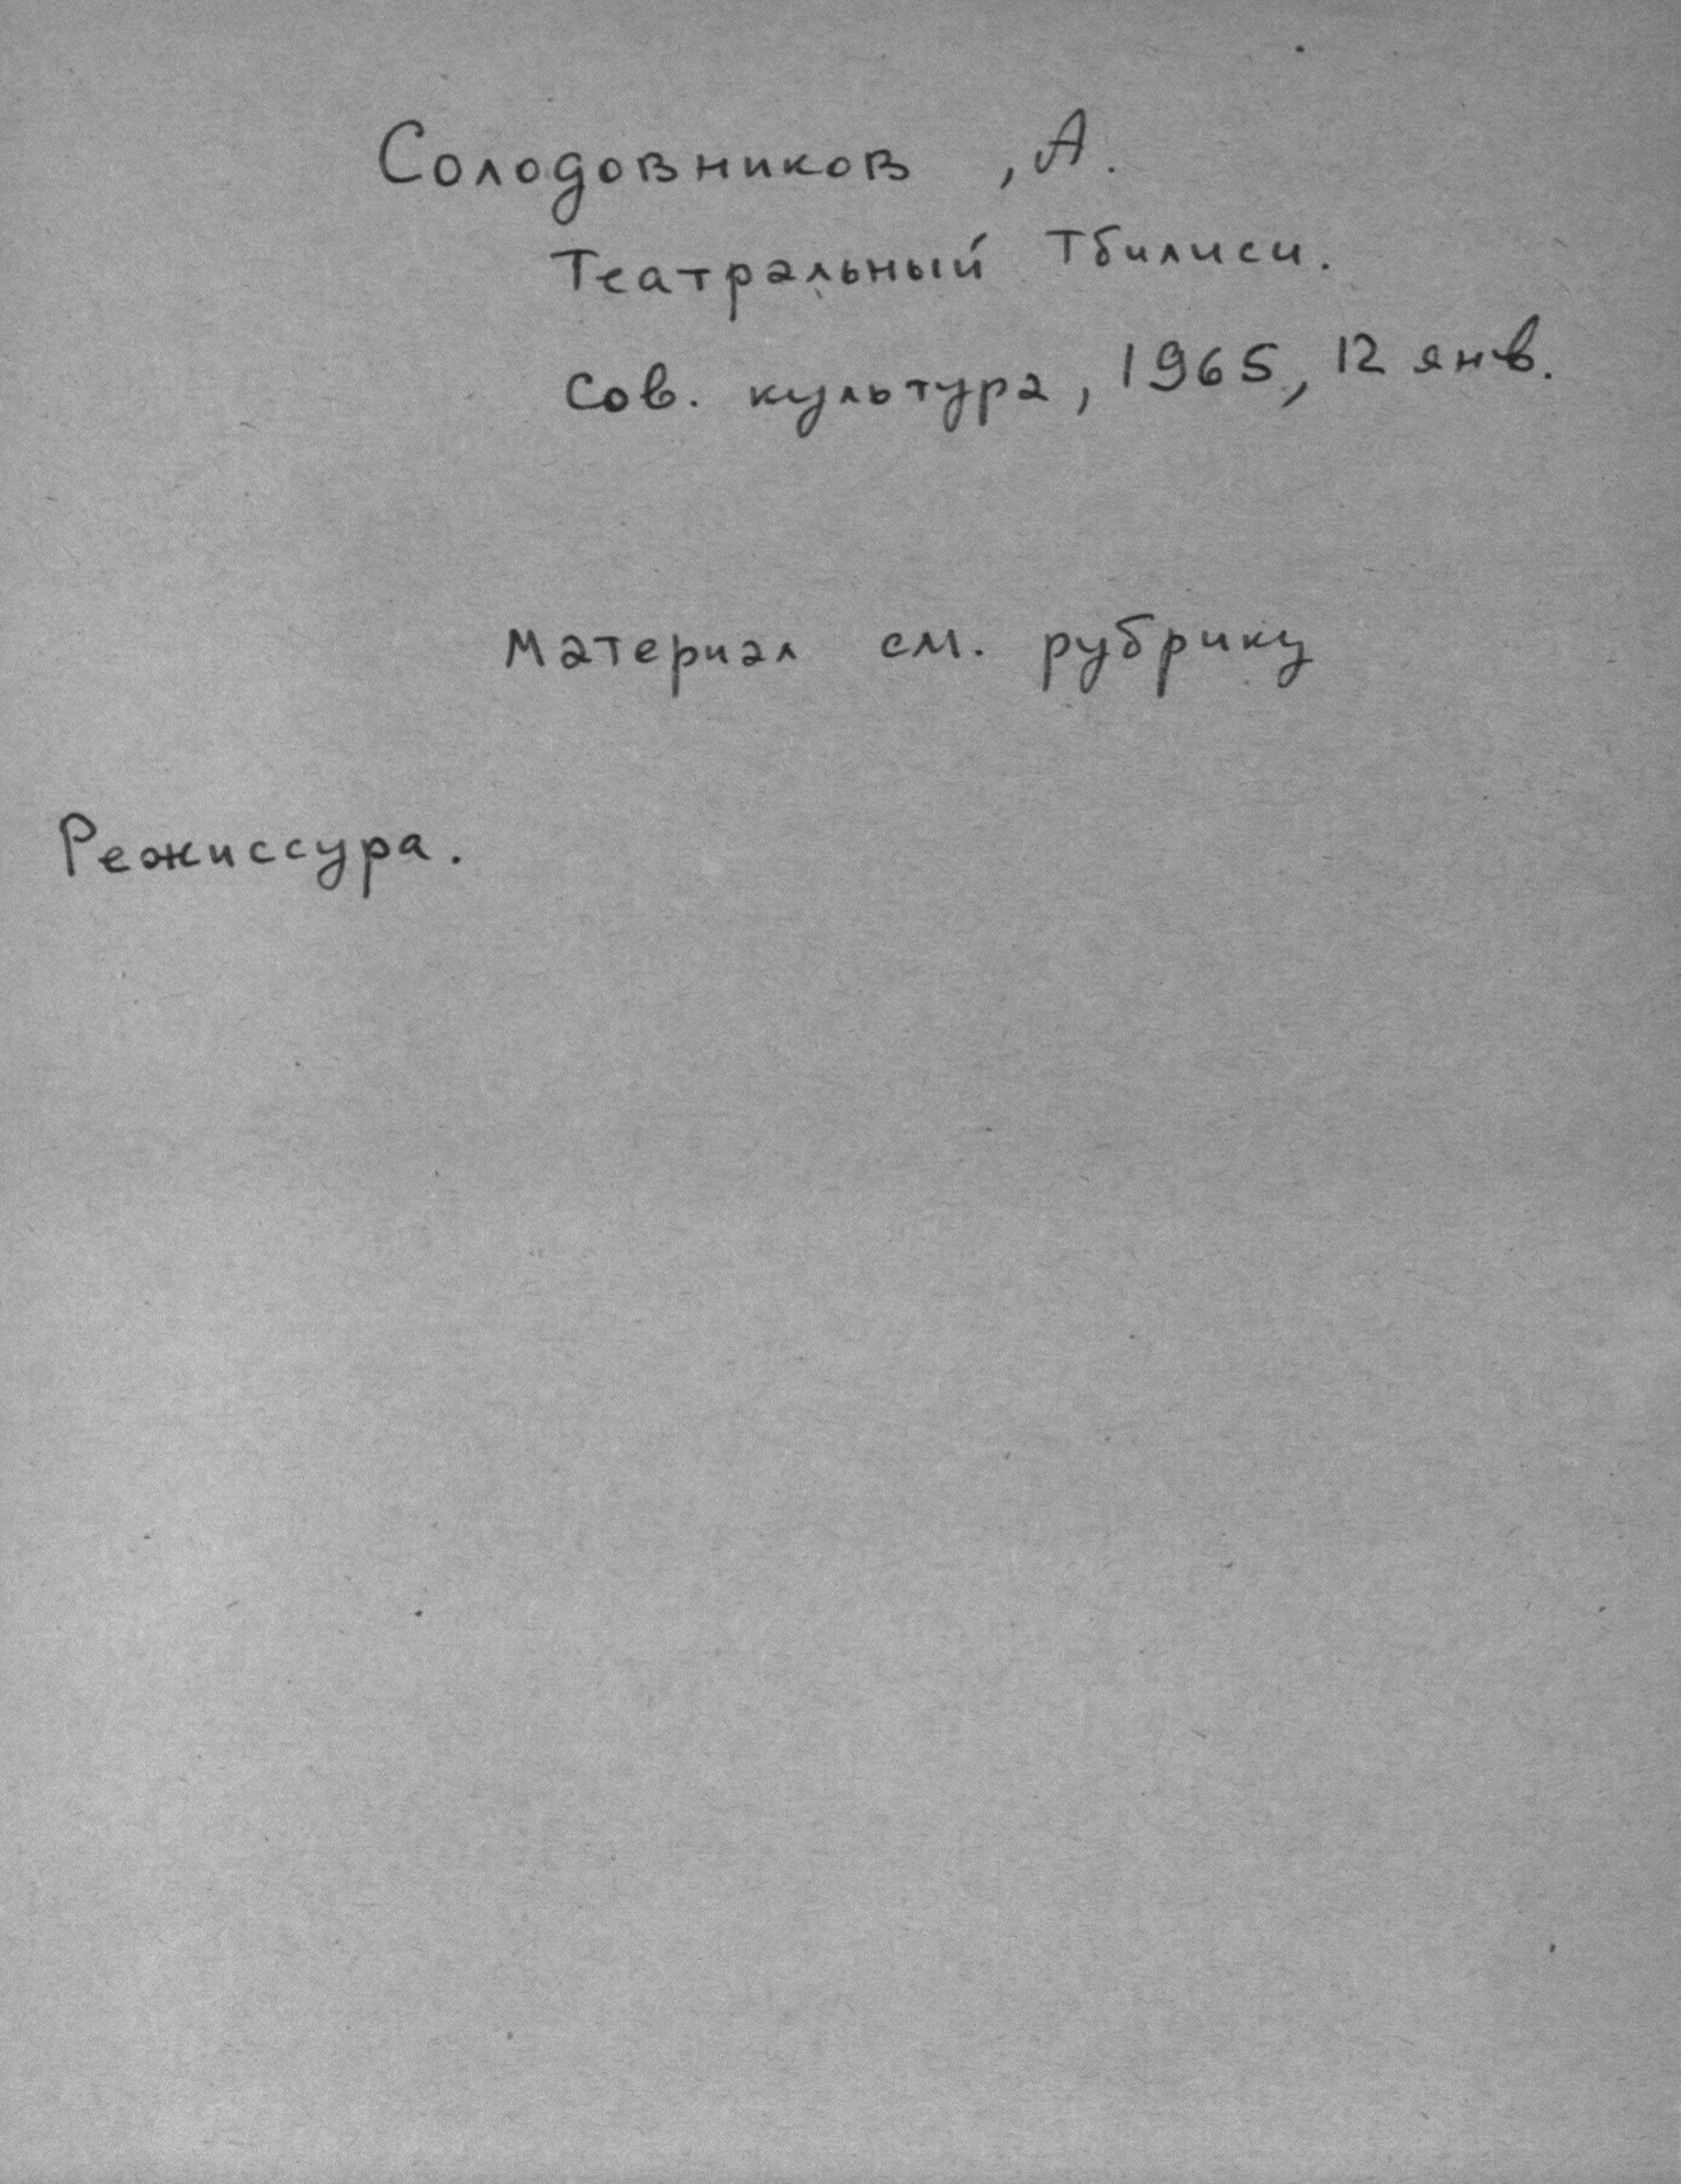 Солодовников, А.
Театральный Тбилиси.
Сов. культура, 1965, 12 янв.
Материал см. рубрику
Режиссура.